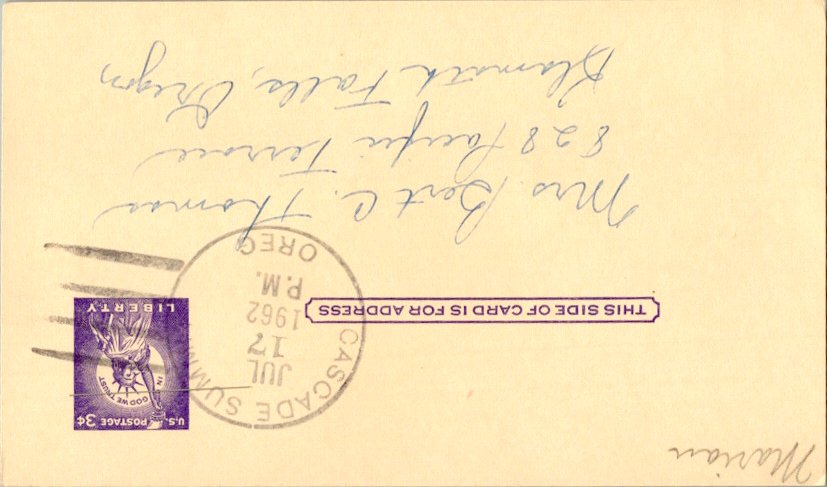 Marian
U.S. POSTAGE 3¢
IN GOD WE TRUST
LIBERTY
CASCADE SUMM
JUL
17
1962
P.M.
OREG
THIS SIDE OF CARD IS FOR ADDRESS
Mrs. Bert C. Thomas
828 Pacific Terrace
Klamath Falls, Oregon